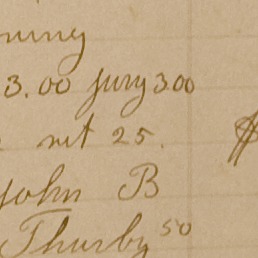 3.00 jury 3.00
net 25.
John B
Thurby 50